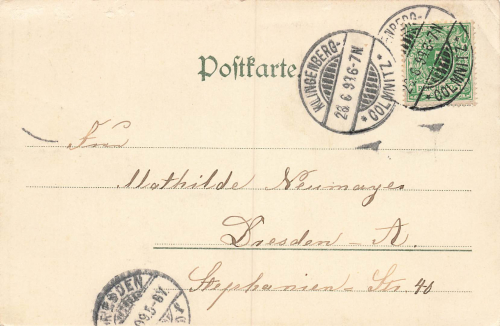 Postkarte
KLINGENBERG-
28.6.99.6-7N.
* COLMNITZ *
ENBERG-
6.99.6-7N
* COLMNITZ *
Frau
Mathilde Neumayer
Dresden - A.
Stephanien - Str 40
DRESDEN
99.5-6V.